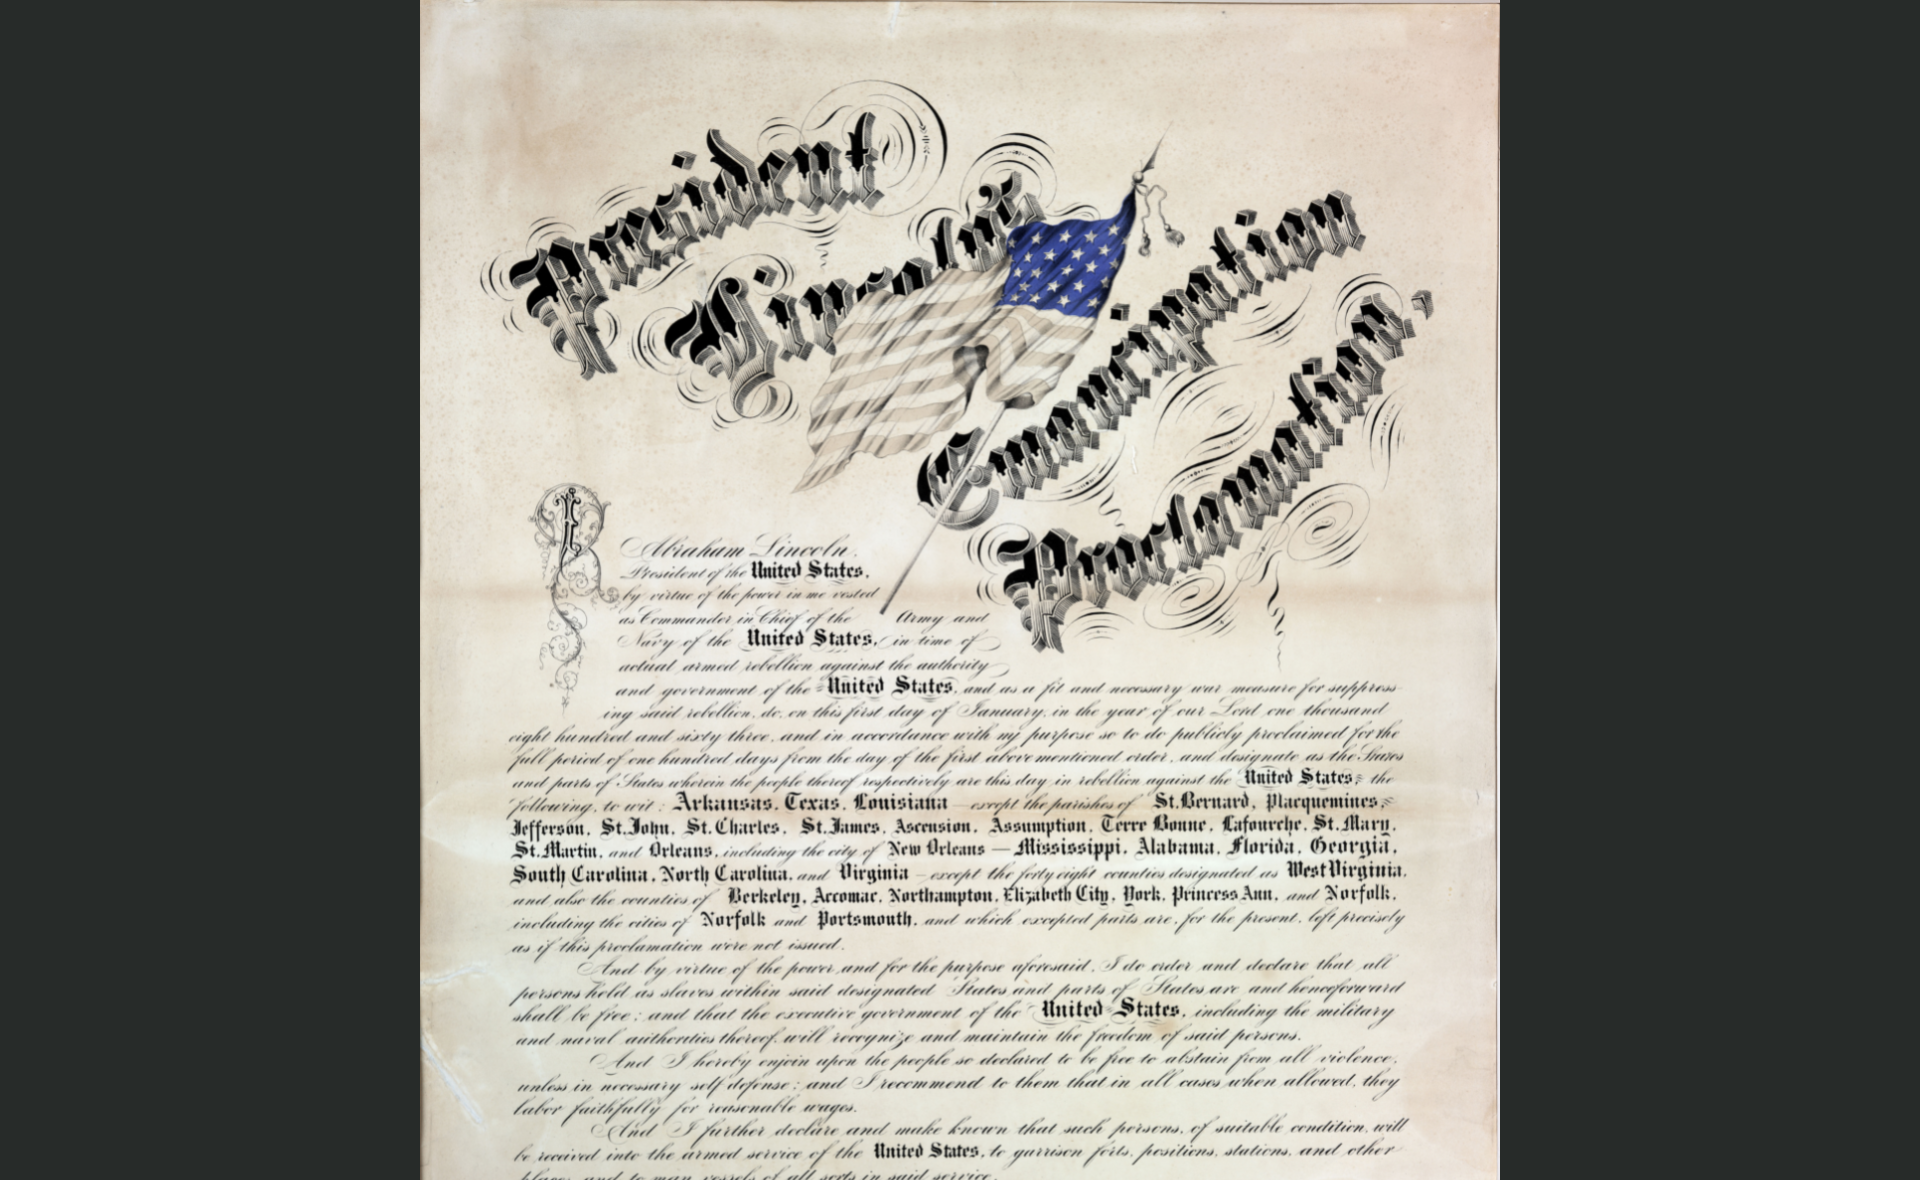 President
Lincoln's
Emancipation
Proclamation.
I Abraham Lincoln.
President of the United States,
by virtue of the power in me vested
as Commander in Chief of the Army and
Navy of the United States, in time of
actual armed rebellion against the authority
and government of the United States, and as a fit and necessary war measure for suppress-
ing said rebellion, do, on this first day of January, in the year of our Lord one thousand
eight hundred and sixty three, and in accordance with my purpose so to do publicly proclaimed for the
full period of one hundred days from the day of the first above mentioned order, and designate as the States
and parts of States wherein the people thereof respectively are this day in rebellion against the United States, the
following, to wit: Arkansas, Texas, Louisiana — except the parishes of St. Bernard, Placquemines,
Jefferson, St. John, St. Charles, St. James, Ascension, Assumption, Terre Bonne, Lafourche, St. Mary,
St. Martin, and Orleans, including the city of New Orleans — Mississippi, Alabama, Florida, Georgia,
South Carolina, North Carolina, and Virginia — except the forty eight counties designated as West Virginia,
and also the counties of Berkeley, Accomac, Northampton, Elizabeth City, York, Princess Ann, and Norfolk,
including the cities of Norfolk and Portsmouth, and which excepted parts are, for the present, left precisely
as if this proclamation were not issued.
And by virtue of the power and for the purpose aforesaid, I do order and declare that all
persons held as slaves within said designated States and parts of States are and henceforward
shall be free; and that the executive government of the United States, including the military
and naval authorties thereof, will recognize and maintain the freedom of said persons.
And I hereby enjoin upon the people so declared to be free to abstain from all violence,
unless in necessary self defense; and I recommend to them that in all cases when allowed, they
labor faithfully for reasonable wages.
And I further declare and make known that such persons, of suitable condition, will
be received into the armed service of the United States, to garrison forts, positions, stations, and other
places and to man vessels of all sorts in said service.